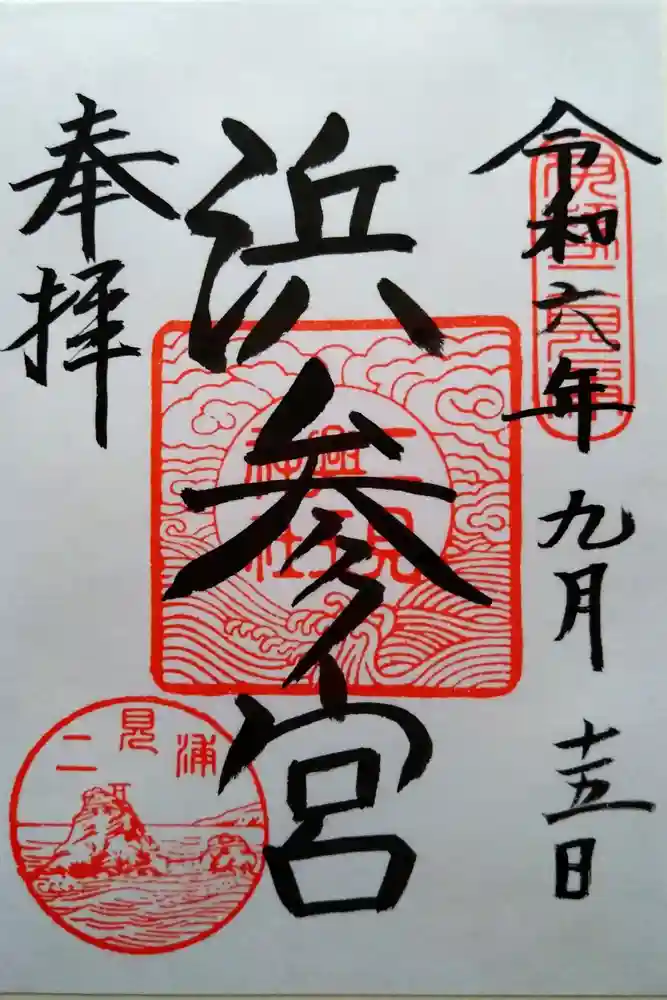 令和六年九月十五日
浜参宮
奉拝
二見
興玉
神社
二見浦